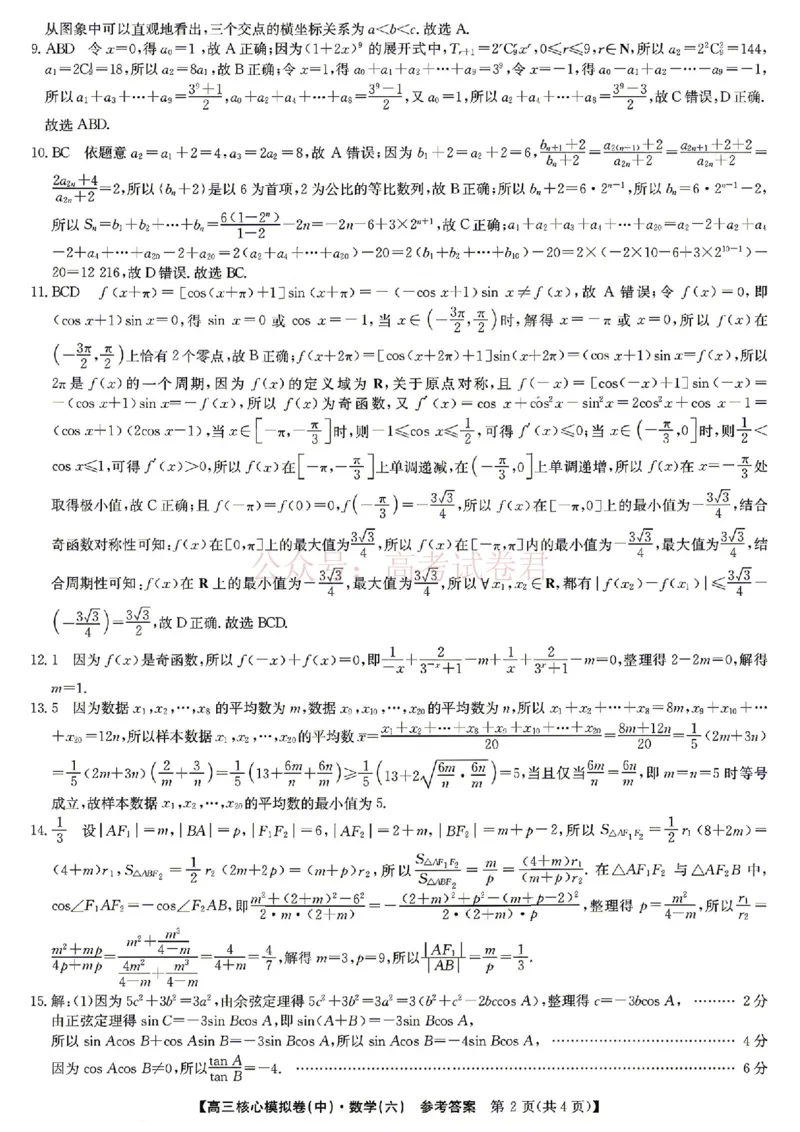 从图象中可以直观地看出,三个交点的横坐标关系为a<b<c.故选A.
9. ABD 令x=0,得a₀=1,故A正确;因为(1+2x)⁹的展开式中,Tᵣ₊₁=2ʳC₉ʳxʳ,0≤r≤9,r∈N,所以a₂=2²C₉²=144,
a₁=2C₉¹=18,所以a₂=8a₁,故B正确;令x=1,得a₀+a₁+a₂+…+a₉=3⁹,令x=-1,得a₀-a₁+a₂-…-a₉=-1,
所以a₁+a₃+…+a₉=(3⁹+1)/2,a₀+a₂+a₄+…+a₈=(3⁹-1)/2,又a₀=1,所以a₂+a₄+…+a₈=(3⁹-3)/2,故C错误,D正确.
故选ABD.
10. BC 依题意a₂=a₁+2=4,a₃=2a₂=8,故A错误;因为b₁+2=a₂+2=6,(bₙ₊₁+2)/(bₙ+2)=(a₂₍ₙ₊₁₎+2)/(a₂ₙ+2)=(a₂ₙ₊₁+2+2)/(a₂ₙ+2)=
(2a₂ₙ+4)/(a₂ₙ+2)=2,所以{bₙ+2}是以6为首项,2为公比的等比数列,故B正确;所以bₙ+2=6·2ⁿ⁻¹,所以bₙ=6·2ⁿ⁻¹-2,
所以Sₙ=b₁+b₂+…+bₙ=6(1-2ⁿ)/(1-2)-2n=-2n-6+3×2ⁿ⁺¹,故C正确;a₁+a₂+a₃+a₄+…+a₂₀=a₂-2+a₂+a₄
-2+a₄+…+a₂₀-2+a₂₀=2(a₂+a₄+…+a₂₀)-20=2(b₁+b₂+…+b₁₀)-20=2×(-2×10-6+3×2¹⁰⁻¹)-
20=12 216,故D错误.故选BC.
11. BCD f(x+π)=[cos(x+π)+1]sin(x+π)=-(-cos x+1)sin x≠f(x),故A错误;令f(x)=0,即
(cos x+1)sin x=0,得sin x=0或cos x=-1,当x∈(-3π/2,π/2)时,解得x=-π或x=0,所以f(x)在
(-3π/2,π/2)上恰有2个零点,故B正确;f(x+2π)=[cos(x+2π)+1]sin(x+2π)=(cos x+1)sin x=f(x),所以
2π是f(x)的一个周期,因为f(x)的定义域为R,关于原点对称,且f(-x)=[cos(-x)+1]sin(-x)=
-(cos x+1)sin x=-f(x),所以f(x)为奇函数,又f′(x)=cos x+cos²x-sin²x=2cos²x+cos x-1=
(cos x+1)(2cos x-1),当x∈[-π,-π/3]时,则-1≤cos x≤1/2,可得f′(x)≤0;当x∈(-π/3,0]时,则1/2<
cos x≤1,可得f′(x)>0,所以f(x)在[-π,-π/3]上单调递减,在(-π/3,0]上单调递增,所以f(x)在x=-π/3处
取得极小值,故C正确;且f(-π)=f(0)=0,f(-π/3)=-3√3/4,所以f(x)在[-π,0]上的最小值为-3√3/4,结合
奇函数对称性可知:f(x)在[0,π]上的最大值为3√3/4,所以f(x)在[-π,π]内的最小值为-3√3/4,最大值为3√3/4,结
公众号:高考试卷君
合周期性可知:f(x)在R上的最小值为-3√3/4,最大值为3√3/4,所以∀x₁,x₂∈R,都有|f(x₂)-f(x₁)|≤3√3/4-
(-3√3/4)=3√3/2,故D正确.故选BCD.
12. 1 因为f(x)是奇函数,所以f(-x)+f(x)=0,即1/(-x)+2/(3⁻ˣ+1)-m+1/x+2/(3ˣ+1)-m=0,整理得2-2m=0,解得
m=1.
13. 5 因为数据x₁,x₂,…,x₈的平均数为m,数据x₉,x₁₀,…,x₂₀的平均数为n,所以x₁+x₂+…+x₈=8m,x₉+x₁₀+…
+x₂₀=12n,所以样本数据x₁,x₂,…,x₂₀的平均数x̄=(x₁+x₂+…+x₈+x₉+x₁₀+…+x₂₀)/20=(8m+12n)/20=1/5(2m+3n)
=1/5(2m+3n)(2/m+3/n)=1/5(13+6m/n+6n/m)≥1/5(13+2√(6m/n·6n/m))=5,当且仅当6m/n=6n/m,即m=n=5时等号
成立,故样本数据x₁,x₂,…,x₂₀的平均数的最小值为5.
14. 1/3 设|AF₁|=m,|BA|=p,|F₁F₂|=6,|AF₂|=2+m,|BF₂|=m+p-2,所以S△AF₁F₂=1/2r₁(8+2m)=
(4+m)r₁,S△ABF₂=1/2r₂(2m+2p)=(m+p)r₂,所以S△AF₁F₂/S△ABF₂=m/p=(4+m)r₁/(m+p)r₂.在△AF₁F₂与△AF₂B中,
cos∠F₁AF₂=-cos∠F₂AB,即(m²+(2+m)²-6²)/(2·m·(2+m))=-((2+m)²+p²-(m+p-2)²)/(2·(2+m)·p),整理得p=m²/(4-m),所以r₁/r₂=
(m²+mp)/(4p+mp)=(m²+m³/(4-m))/(4m²/(4-m)+m³/(4-m))=4/(4+m)=4/7,解得m=3,p=9,所以|AF₁|/|AB|=m/p=1/3.
15. 解:(1)因为5c²+3b²=3a²,由余弦定理得5c²+3b²=3a²=3(b²+c²-2bccos A),整理得c=-3bcos A, ……… 2分
由正弦定理得sin C=-3sin Bcos A,即sin(A+B)=-3sin Bcos A,
所以sin Acos B+cos Asin B=-3sin Bcos A,所以sin Acos B=-4sin Bcos A, ……………………………… 4分
因为cos Acos B≠0,所以tan A/tan B=-4. ……………………………………………………………… 6分
【高三核心模拟卷(中)·数学(六) 参考答案 第2页(共4页)】